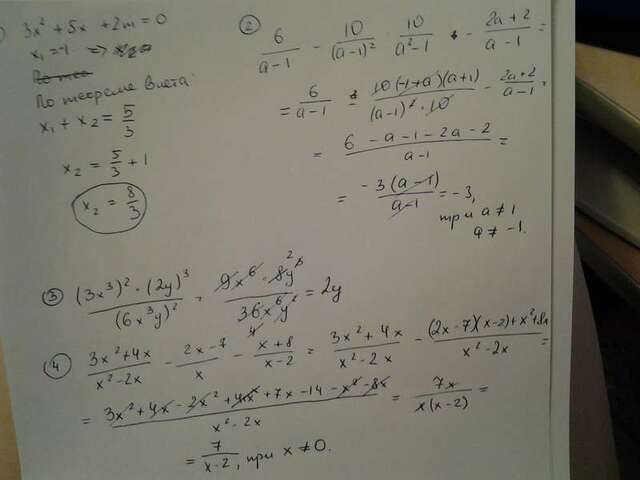 1) 3x² + 5x + 2m = 0
x₁ = -1 ⇒
По теореме Виета:
x₁ + x₂ = 5/3
x₂ = 5/3 + 1
x₂ = 8/3
② 6/(a-1) - 10/(a-1)² : 10/(a²-1) - (2a+2)/(a-1) =
= 6/(a-1) - 10(-1+a)(a+1)/((a-1)²·10) - (2a+2)/(a-1) =
= (6 - a - 1 - 2a - 2)/(a-1) =
= -3(a-1)/(a-1) = -3,
при a ≠ 1
a ≠ -1.
③ (3x³)²·(2y)³/(6x³y)² = 9x⁶·8y³/36x⁶y² = 2y
④ (3x²+4x)/(x²-2x) - (2x-7)/x - (x+8)/(x-2) = (3x²+4x)/(x²-2x) - ((2x-7)(x-2)+x²+8x)/(x²-2x) =
= (3x²+4x-2x²+4x+7x-14-x²-8x)/(x²-2x) = 7x/(x(x-2)) =
= 7/(x-2), при x ≠ 0.